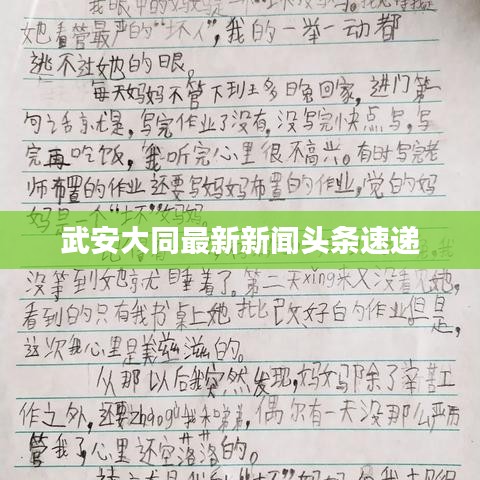 我眼中的妈妈是一个“坏妈
她看管最严的“坏人”,我的一举一动都
逃不过她的眼。
每天妈妈不管下班多晚回家,进门第一
句话就是,写完作业了没有,没写完快点写,写
完再吃饭,我听完心里很不高兴。有时写完老
师布置的作业还要写妈妈布置的作业,觉的妈
妈是一个“坏”妈妈
武安大同最新新闻头条速递
没等到她就睡着了。第二天xǐng来又没看见她,
看到的只有我书桌上她批改好白的作业但是,
这次我心里是美滋滋的。
从那以后我突然发现,妈妈除了辛苦工
作之外,还要zhàogù我和弟弟,偶尔有一天没那么严厉
管我了,心里还空落落的。